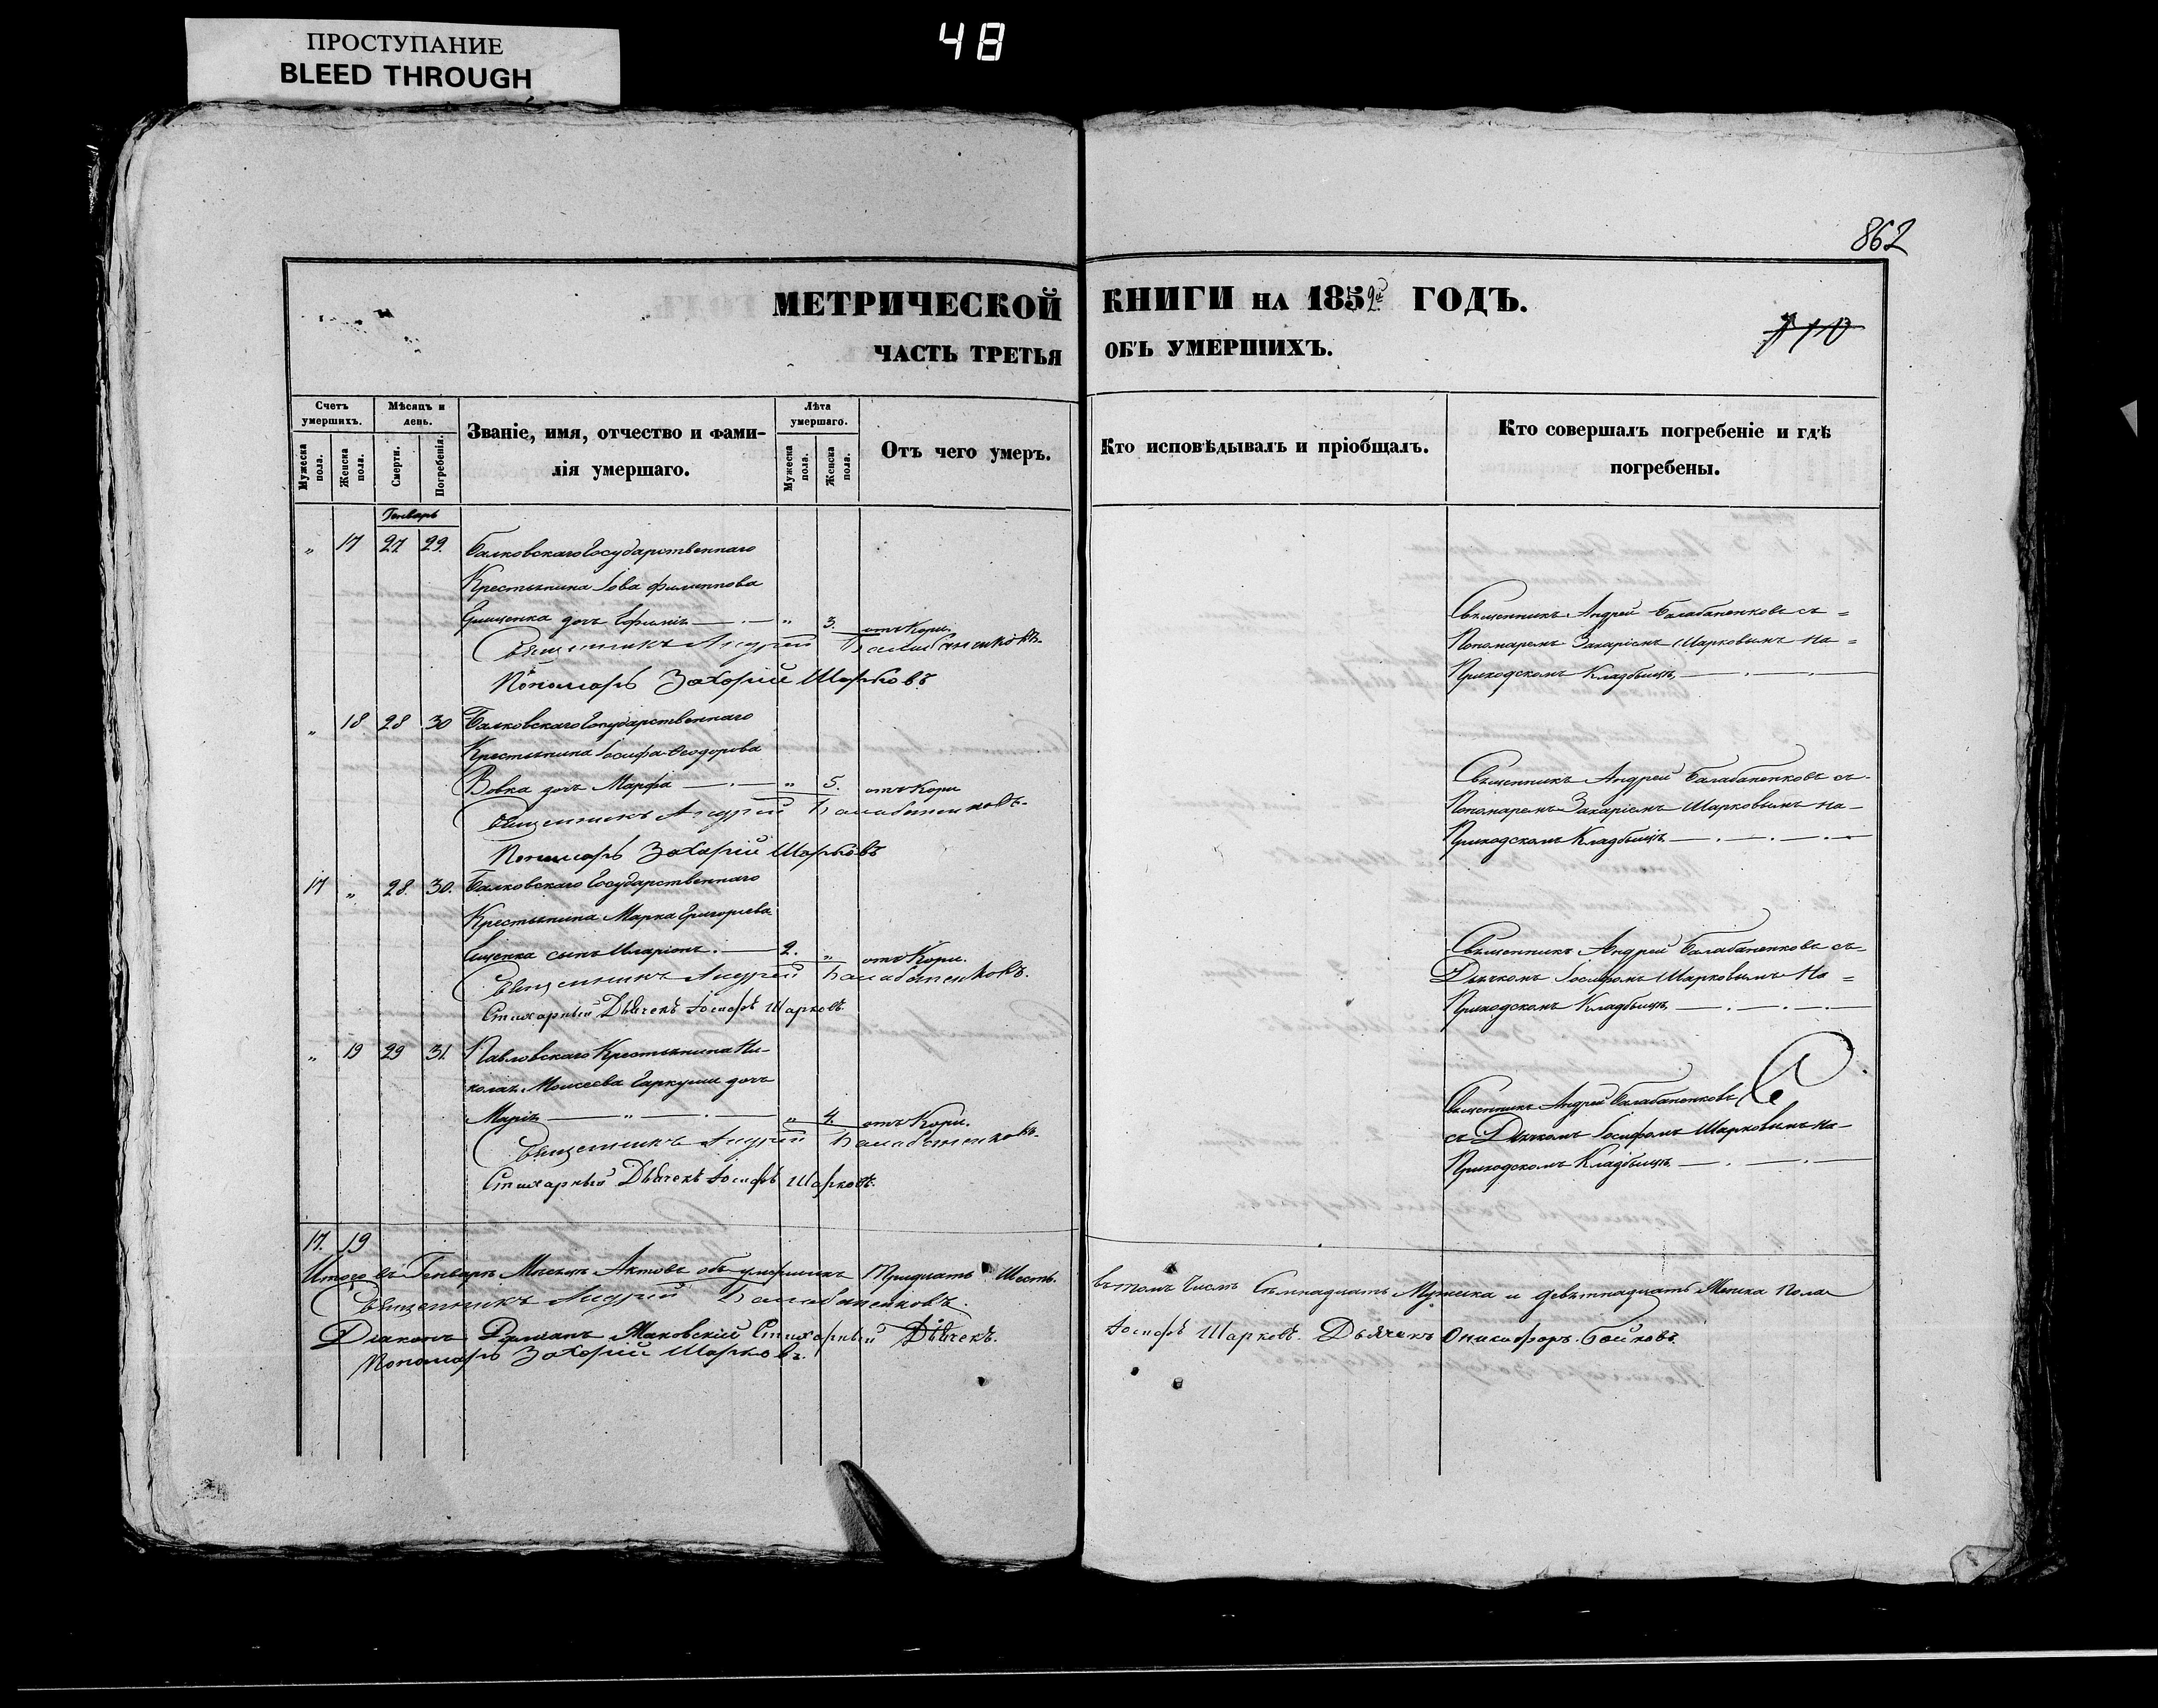 ПРОСТУПАНИЕ
BLEED THROUGH
48
862
МЕТРИЧЕСКОЙ КНИГИ НА 1852й ГОДЪ.
ЧАСТЬ ТРЕТЬЯ ОБЪ УМЕРШИХЪ.
710
Счетъ умершихъ.
Мужеска пола.
Женска пола.
Мѣсяцъ и день.
Смерти.
Погребенія.
Званіе, имя, отчество и фамилія умершаго.
Лѣта умершаго.
Мужеска пола.
Женска пола.
Отъ чего умеръ.
Кто исповѣдывалъ и пріобщалъ.
Кто совершалъ погребеніе и гдѣ погребены.
Генварь
„ 17 27 29. Балковскаго Государственнаго
Крестьянина Іова Филиппова
дочь Ефимія „ 3. отъ Кори.
Священникъ Андрей Балабаненковъ.
Пономарь Захарій Шарковъ
Священникъ Андрей Балабаненковъ съ
Пономаремъ Захаріемъ Шарковымъ на
Приходскомъ Кладбищѣ
„ 18. 28 30 Балковскаго Государственнаго
Крестьянина Іосифа Ѳеодорова
Вовка дочь Марфа „ 5. отъ Кори
Священникъ Андрей Балабаненковъ.
Пономарь Захарій Шарковъ
Священникъ Андрей Балабаненковъ съ
Пономаремъ Захаріемъ Шарковымъ на
Приходскомъ Кладбищѣ
17 „ 28. 30. Балковскаго Государственнаго
Крестьянина Марка Григорьева
сынъ Иларіонъ. 2. „ отъ Кори.
Священникъ Андрей Балабаненковъ.
Стихарный Дьячекъ Іосифъ Шарковъ.
Священникъ Андрей Балабаненковъ съ
Дьячкомъ Іосифомъ Шарковымъ на
Приходскомъ Кладбищѣ
„ 19 29 31. Павловскаго Крестьянина Ни-
колая Моисеева Гаркуши дочь
Марія „ 4. отъ Кори.
Священникъ Андрей Балабаненковъ.
Стихарный Дьячекъ Іосифъ Шарковъ.
Священникъ Андрей Балабаненковъ
съ Дьячкомъ Іосифомъ Шарковымъ на
Приходскомъ Кладбищѣ
17. 19
Итого въ Генварѣ Мѣсяцѣ Актовъ объ умершихъ Тридцать Шесть.
въ томъ числѣ Семнадцать Мужеска и девятнадцать Женска пола
Священникъ Андрей Балабаненковъ.
Діаконъ Маковскій Стихарный Дьячекъ.
Іосифъ Шарковъ. Дьячекъ Онисифоръ Бойковъ.
Пономарь Захарій Шарковъ.